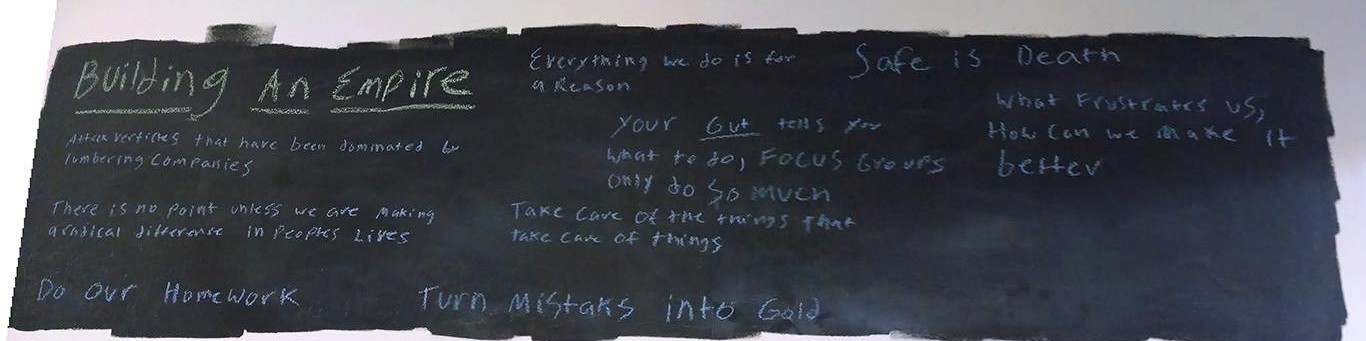 Building An Empire
Attack verticies that have been dominated by
lumbering companies
There is no point unless we are making
a radical difference in peoples Lives
Do Our Homework
Everything we do is for
a Reason
Your Gut tells you
what to do, Focus Groups
only do so much
Take care of the things that
take care of things
Turn Mistaks into Gold
Safe is Death
What Frustrates us,
How can we make it
better